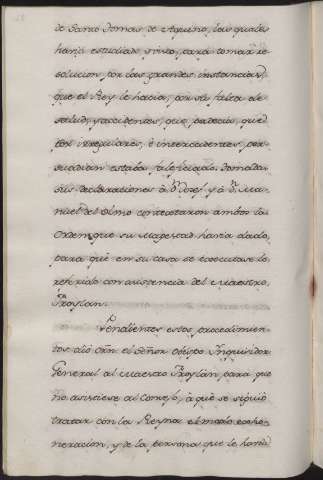 de Santo Thomas de Aquino, las quales
havia estudiado junto, para tomar re
solucion por las grandes instancias,
que el Rey le hacia, por su falta de
salud, y accidentes, que padecia, que
por irregulares, è intercadentes, per
suadian estaba maleficiado. Tomadas
sus declaraciones à D. Josef, y à D. Ma-
nuel del Olmo contextaron ambos la
orden, que su Magestad havia dado,
para que en su casa se executase lo
referido con asistencia del Maestro
Froylan.
Pendientes estos procedimien-
tos dió orn. el Señor Obispo Inquisidor
General al Maestro Froylan, para que
no asistiese al Consejo, à que se siguió
tratar con la Reyna el modo exho-
neracion, y de la persona que le havia